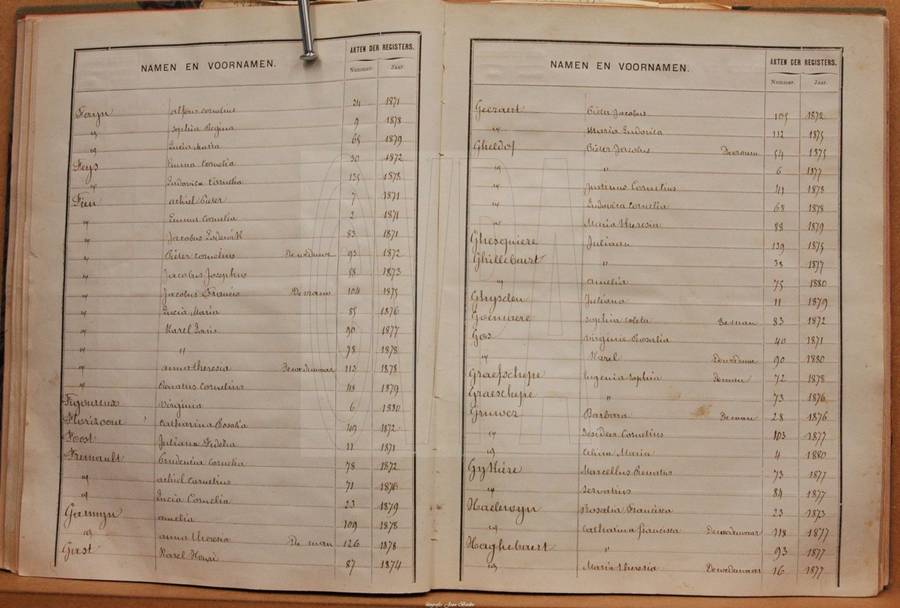 NAMEN EN VOORNAMEN. AKTEN DER REGISTERS.
Nummer. Jaar.
Fayn Alfons Cornelius 24 1871
" Sophia Regina 9 1878
" Lucia Maria 65 1879
Feys Emma Cornelia 30 1872
" Ludovica Cornelia 135 1878
Fieu Achiel Pieter 7 1871
" Emma Cornelia 2 1871
" Jacobus Lodewijk 83 1871
" Pieter Cornelius De weduwe 93 1872
" Jacobus Josephus 58 1873
" Jacobus Francis De vrouw 104 1875
" Lucia Maria 85 1876
" Karel Louis 90 1877
" " 78 1878
" Anna Theresia De weduwnaar 113 1878
" Renatus Cornelius 48 1879
Figoureux Virginia 6 1880
Florizoone Catharina Rosalia 109 1872
Foost Juliana Fidelia 11 1871
Fremault Prudentia Cornelia 78 1872
" Achiel Cornelius 71 1876
" Lucia Cornelia 23 1879
Garmyn Amelia 109 1878
" Anna Theresia De man 126 1878
Gast Karel Henri 87 1874
NAMEN EN VOORNAMEN. AKTEN DER REGISTERS.
Nummer. Jaar.
Geeraert Pieter Jacobus 105 1872
" Maria Ludovica 112 1875
Gheldof Pieter Jacobus De vrouw 54 1875
" " 6 1877
" Justinus Cornelius 41 1878
" Ludovica Cornelia 68 1878
" Maria Theresia 88 1879
Ghesquiere Juliaan 139 1875
Ghillebaert " 38 1877
" Amelia 75 1880
Ghyselen Juliana 11 1879
Goenwere Sophia Coleta De man 83 1872
Gos Virginie Rosalia 40 1871
" Karel De weduwe 90 1880
Graefschepe Eugenia Sophia De man 72 1878
Graeschepe " 73 1876
Gruwez Barbara De man 28 1876
" Desideer Cornelius 103 1877
" Celina Maria 4 1880
Gythiere Marcellus Renatus 73 1877
" Servatius 84 1877
Haelewyn Rosalia Francisca 23 1873
" Catharina Francisca De weduwnaar 118 1877
Haghebaert " 93 1877
" Maria Theresia De weduwnaar 16 1877